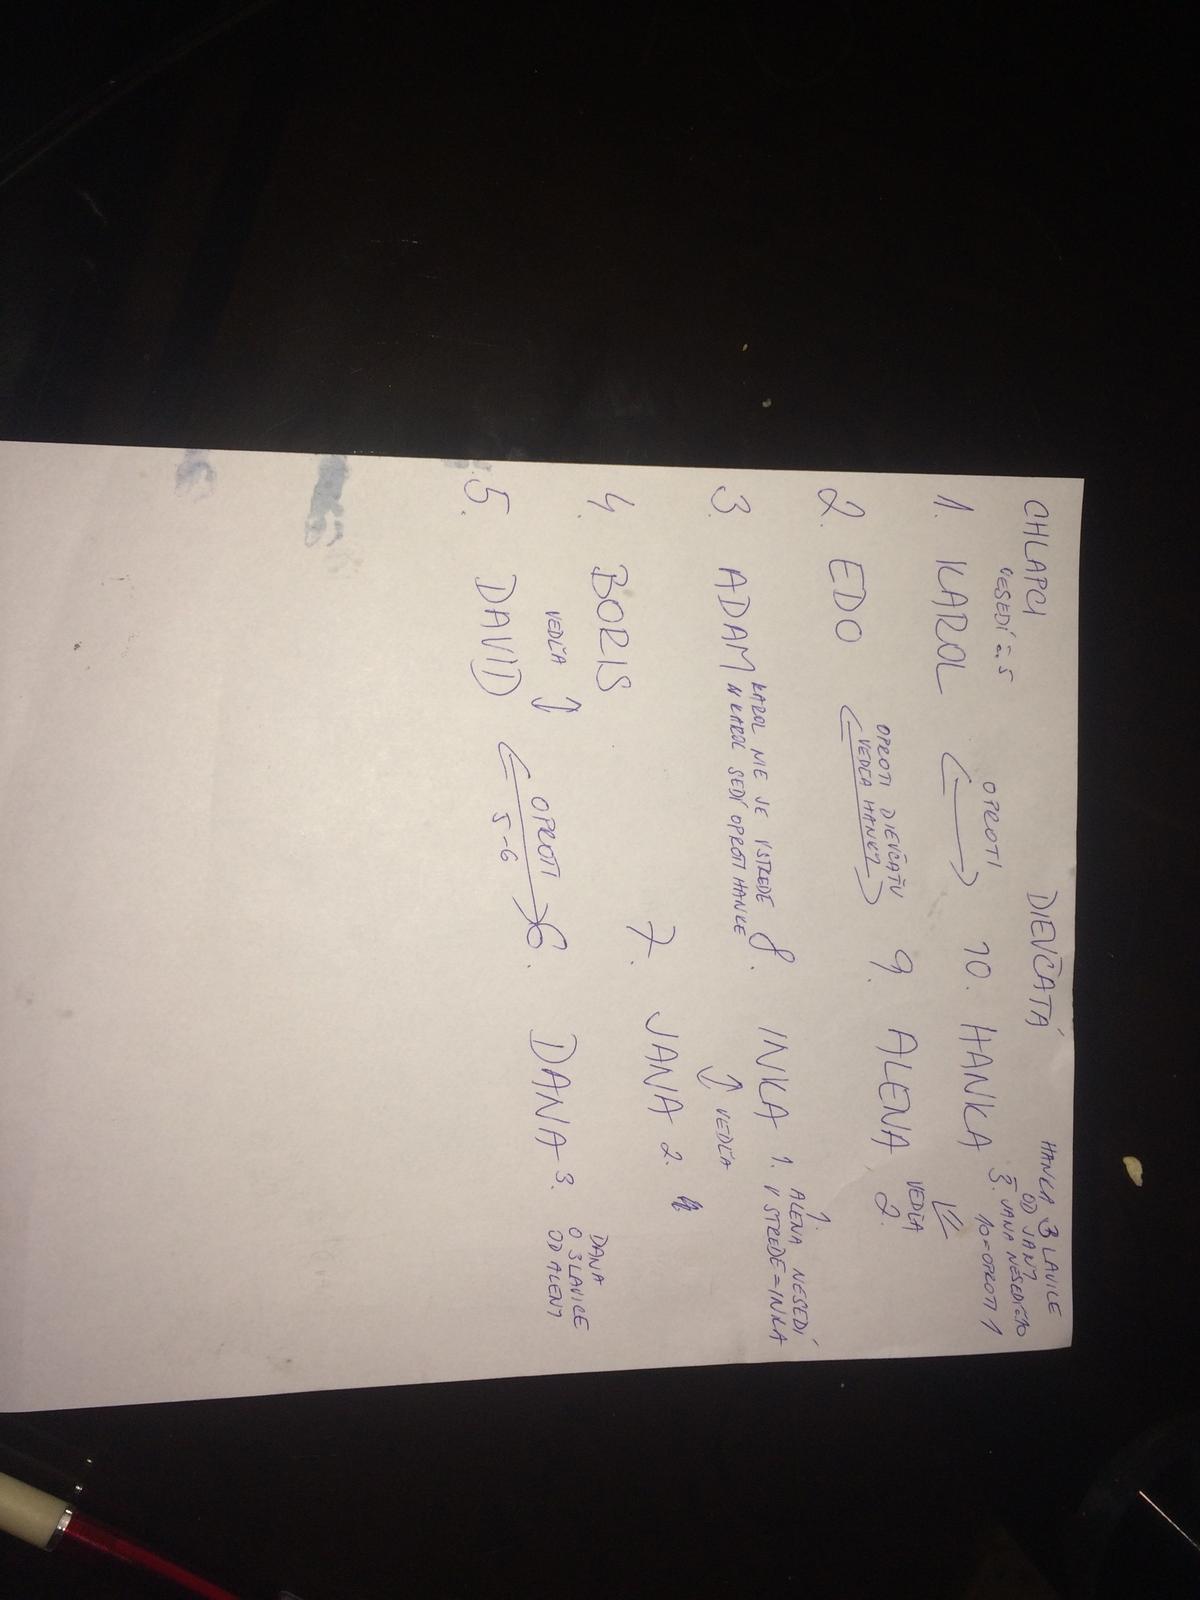 CHLAPCI DIEVČATÁ HANKA 3 LAVICE
OD JANY
NESEDÍ č. 5 OPROTI 3. JANA NESEDÍ č. 10
1. KAROL 10. HANKA 10 = OPROTI 1
VEDĽA
OPROTI DIEVČAŤU
VEDĽA HANKY
2. EDO 9. ALENA 2.
1.
ALENA NESEDÍ
KAROL NIE JE V STREDE
3. ADAM KAROL SEDÍ OPROTI HANKE 8. INKA 1. V STREDE = INKA
VEDĽA
4. BORIS 7. JANA 2.
VEDĽA OPROTI
5-6
DANA
O 3 LAVICE
OD ALENY
5. DAVID 6. DANA 3.